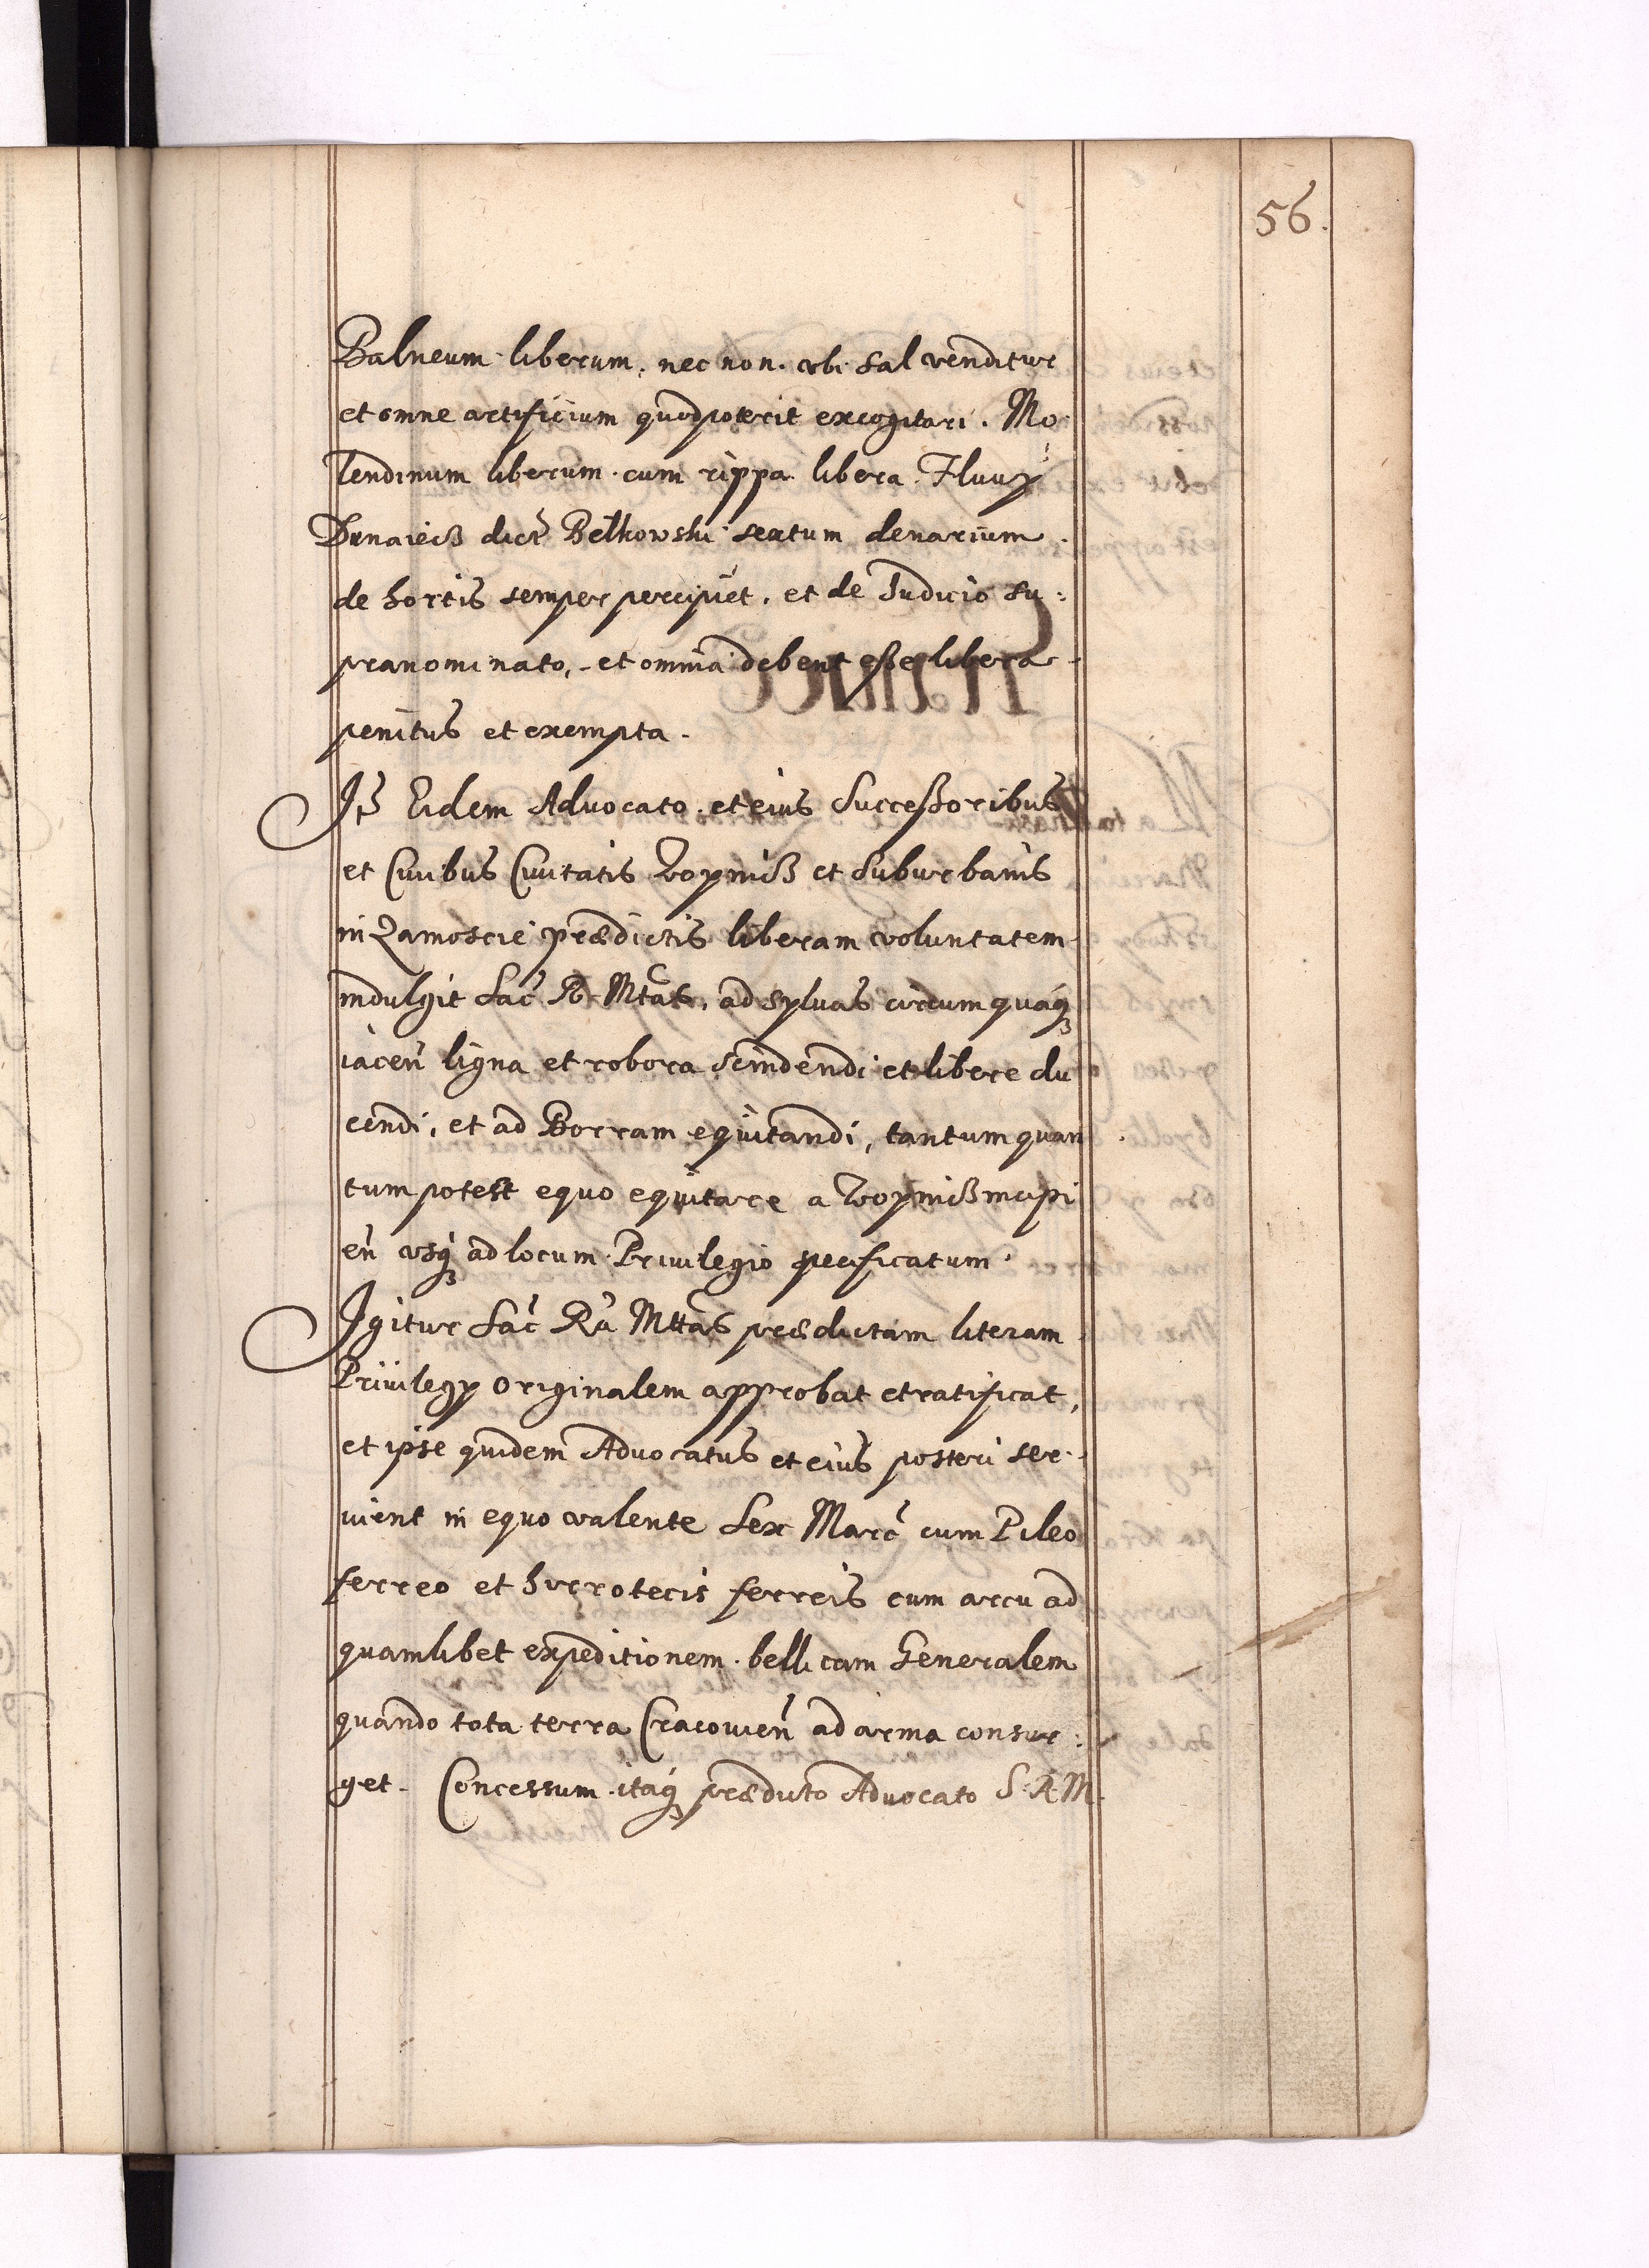 56.
Balneum liberum, nec non. vbi Sal venditur
et omne artificium quod poterit excogitari. Mo
lendinum liberum cum rippa libera Fluuÿ
Dunaieiß dict Belkowski sextum denarium
de hortis semper percipiet, et de Iudicio su:
pranominato, et omnia debent eße libera
penitus et exempta.
It Eidem Advocato et eius Succeßoribus
et Ciuibus Ciuitatis Ropniß et Suburbanis
in Zamoscie prædictis liberam voluntatem
indulgit Sac R Mtas, ad syluas circumquaq
iacen ligna et robora scindendi et libere du
cendi, et ad Borram equitandi, tantum quan
tum potest equo equitare a Ropniß incipi
en vsq ad locum Priuilegio specificatum
Igitur Sac Ra Mttas prædictam literam
Priuilegÿ Originalem approbat et ratificat,
et ipse quidem Advocatus et eius posteri ser
uient in equo valente Sex Marc cum Pileo
ferreo et hirrotecis ferreis cum arcu ad
quamlibet expeditionem bellicam Generalem
quando tota terra Cracouien ad arma consur:
get. Concessum itaq prædicto Advocato S. R. M.